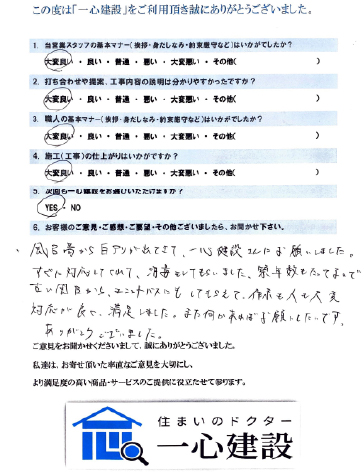 この度は「一心建設」をご利用頂き誠にありがとうございました。
1. 当営業スタッフの基本マナー(挨拶・身だしなみ・約束厳守など)はいかがでしたか?
大変良い・良い・普通・悪い・大変悪い・その他( )
2. 打ち合わせや提案、工事内容の説明は分かりやすかったですか?
大変良い・良い・普通・悪い・大変悪い・その他( )
3. 職人の基本マナー(挨拶・身だしなみ・約束厳守など)はいかがでしたか?
大変良い・良い・普通・悪い・大変悪い・その他( )
4. 施工(工事)の仕上がりはいかがですか?
大変良い・良い・普通・悪い・大変悪い・その他( )
5. 次回も一心建設をお選びいただけますか?
YES・NO
6. お客様のご意見・ご感想・ご要望・その他ございましたら、お聞かせ下さい。
風呂場から白アリが出てきて、一心建設さんにお願いしました。
すぐに対応してくれて、消毒をしてもらいました。築年数もたってまして
古い風呂から、ユニットバスにもしてもらって、作業も人も大変
対応が良く、満足しました。また何かあればお願いしたいです。
ありがとうございました。
ご意見をお聞かせくださいまして、誠にありがとうございました。
私達は、お寄せ頂いた率直なご意見を大切にし、
より満足度の高い商品・サービスのご提供に役立たせて参ります。
住まいのドクター
一心建設